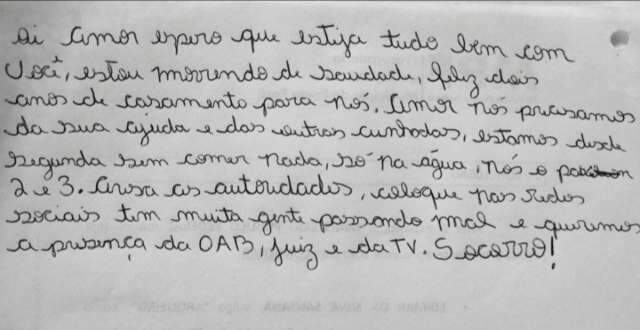 Oi Amor espero que esteja tudo bem com
Você, estou morrendo de saudade, feliz dois
anos de casamento para nós. Amor nós precisamos
da sua ajuda e das outras cunhadas, estamos desde
segunda sem comer nada, só na água, nós o
2 e 3. avisa as autoridades, coloque nas redes
sociais tem muita gente passando mal e queremos
a presença da OAB, juiz e da TV. Socorro!